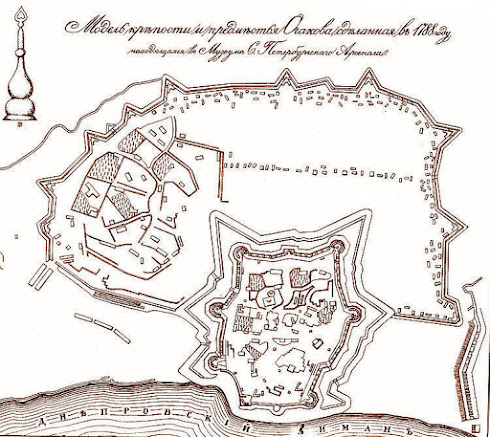 Модель крѣпости и предмѣстья Очакова, сдѣланная въ 1788 году,
находящаяся въ Музеумѣ С. Петербургскаго Арсенала.
ДНѢПРОВСКІЙ ЛИМАНЪ